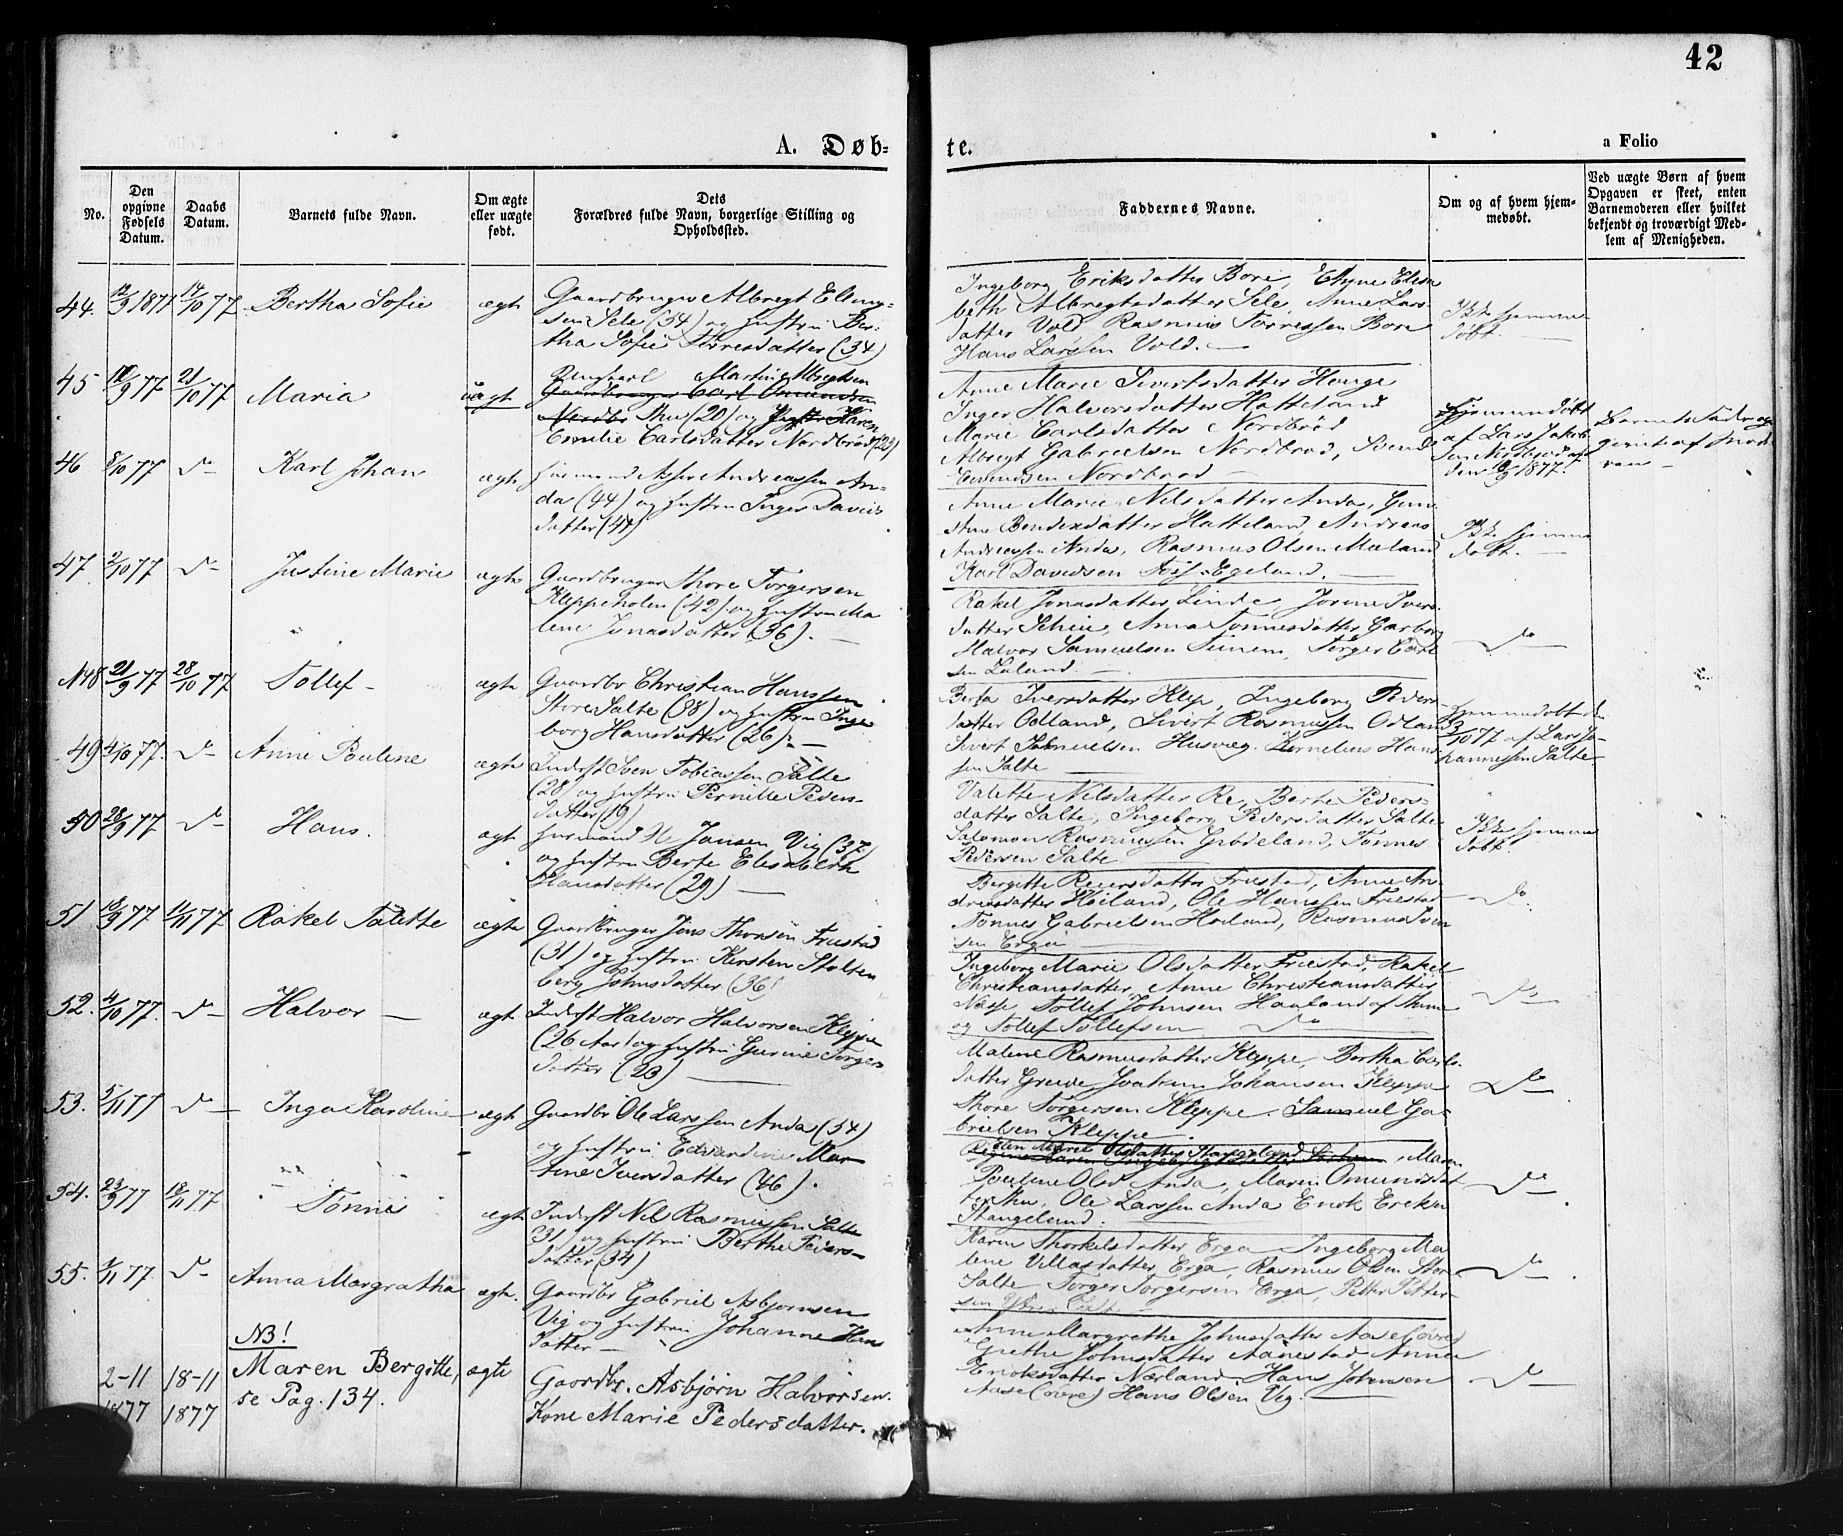 42
A. Døb-
te.
a Folio
No.
Den opgivne Fødsels Datum.
Daabs Datum.
Barnets fulde Navn.
Om ægte eller uægte født.
Dets Forældres fulde Navn, borgerlige Stilling og Opholdssted.
Faddernes Navne.
Om og af hvem hjemmedøbt.
Ved uægte Børn af hvem Opgaven er skeet, enten Barnemoderen eller hvilket bekjendt og troværdigt Medlem af Menigheden.
44. 12/9 1877 14/10 77 Bertha Sofie ægte
Gaardbruger Albregt Elling-
sen Sele (34) og Hustru Ber-
tha Sofie Torresdatter (34)
Ingeborg Eriksdatter Bore,
beth Albregtsdatter Sele, Anne Lars-
datter Vold Rasmus Torressen Bore
Hans Larssen Vold.
Ikke hjemme
døbt.
45 10/9 77 21/10 77 Maria uægte
Ungkarl Martin Albregtsen
Gaardbruger Carl Omundsen
Nordbr Thu (20) og Pige Karen
Emilie Carlsdatter Nordbrød (22)
Anne Marie Sivertsdatter Houge
Inger Halvorsdatter Hatteland
Marie Carlsdatter Nordbrød
Albregt Gabrielsen Nordbrød,
Nordbrød
Hjemmedøbt
af Lars Jakob
1877.
Barnets Fader op-
givet af Mod
ren
46 8/10 77 do Karl Johan ægte
Huusmand Asser Andreassen An-
da (44) og Hustru Inger Davids
datter (44)
Anne Marie Nilsdatter Anda,
Ane Bendixdatter Hatteland, Andreas
Andreassen Anda, Rasmus Olsen Mæland
Karl Davidsen Egeland.
Ikke hjemme
døbt.
47. 2/10 77 do Justine Marie ægte
Gaardbruger Thore Torgersen
Kleppeholen (42) og Hustru Ma
lene Jonasdatter (36).
Rakel Jonasdatter Linde, Jorine Ivers-
datter Scheie, Anna Tonnesdatter Garborg
Halvor Samuelsen, Torger Carl
sen Laland.
do
N48 21/9 77 28/10 77 Tollef ægte
Gaardbr Christian Hanssen
Store Salte (38) og Hustru Inge
borg Hansdatter (26).
Berta Iversdatter Klep, Ingeborg Peders-
datter Odland, Sivert Rasmussen Odland
Sivert Samuelsen Husvæg. Kornelius Hans-
sen Salte
Hjemmedøbt den
77 af Lars Jo-
hannessen Salte
49 4/10 77. do Anne Pouline ægte
Inderst Sven Tobiassen Salte
(28) og Hustru Pernille Peders-
datter (19)
Valette Nilsdatter Re, Berte Peders-
datter Salte, Ingeborg Pedersdatter Salte
Salomon Rasmussen Grødeland, Tønnes
Pedersen Salte
Ikke hjemme
døbt.
50 28/9 77 do Hans. ægte
Huusmand Jansen Vig (37)
og Hustru Berte Elisabeth
Hansdatter (29)
Bergitte Reiersdatter Friestad, Anne An-
dreasdatter Høiland, Ole Hanssen Friestad
Tønnes Gabrielsen Høiland, Rasmus Iver
sen Erga
do.
51 18/9 77 11/11 77 Rakel Talette ægte
Gaardbruger Jens Thorsen Friestad
(31) og Hustru Kirsten Stolten
berg Johnsdatter (36)
Ingeborg Marie Olsdatter Friestad, Rakel
Christiansdatter, Anne Christiansdatter
Næsse Tollef Johnsen Haaland af Time
og Tollef Tollefsen do
do
52. 4/10 77. do Halvor ægte
Inderst Halvor Halvorsen Kleppe
(26 Aar) og Hustru Gurine Torgers
datter (23)
Malene Rasmusdatter Kleppe, Bertha Carls-
datter Grude Joakim Johansen Kleppe
Thore Torgersen Kleppe. Samuel Ga-
brielsen Kleppe.
do
53. 5/11 77 do Inga Karoline ægte
Gaardbr Ole Larssen Anda (54)
og Hustru Edvardine Mar
tine Iversdatter (46).
Elen Marie Olsdatter Stangeland, Maren
Pouline Olsd Anda, Maren Omundsdat
ter Thu, Ole Larssen Anda Enok Eriksen
Stangeland.
do
54. 23/9 77 18/11 77 Tønnes ægte
Inderst Nils Rasmussen Salte
(31) og Hustru Berthe Peders-
datter (34)
Karen Thorkelsdatter Erga Ingeborg Ma
lene Villasdatter Erga, Rasmus Olsen Store
Salte Torger Torgersen Erga, Petter Petter-
sen Salte
do
55. 2/11 77. do Anna Margratha ægte.
Gaardbr Gabriel Asbjørnsen
Vig og Hustru Johanne Hans
datter
Anne Margrethe Johnsdatter Aase (øvre)
Grethe Johnsdatter Aanestad Anna
Enoksdatter Nærland. Hans Johnsen
Aase (øvre) Hans Olsen Vig.
do
NB!
2-11 1877 18-11 1877 Maren Bergitte, ægte
se Pag. 134.
Gaardbr. Asbjørn Halvorsen.
Kone Marie Pedersdatter.